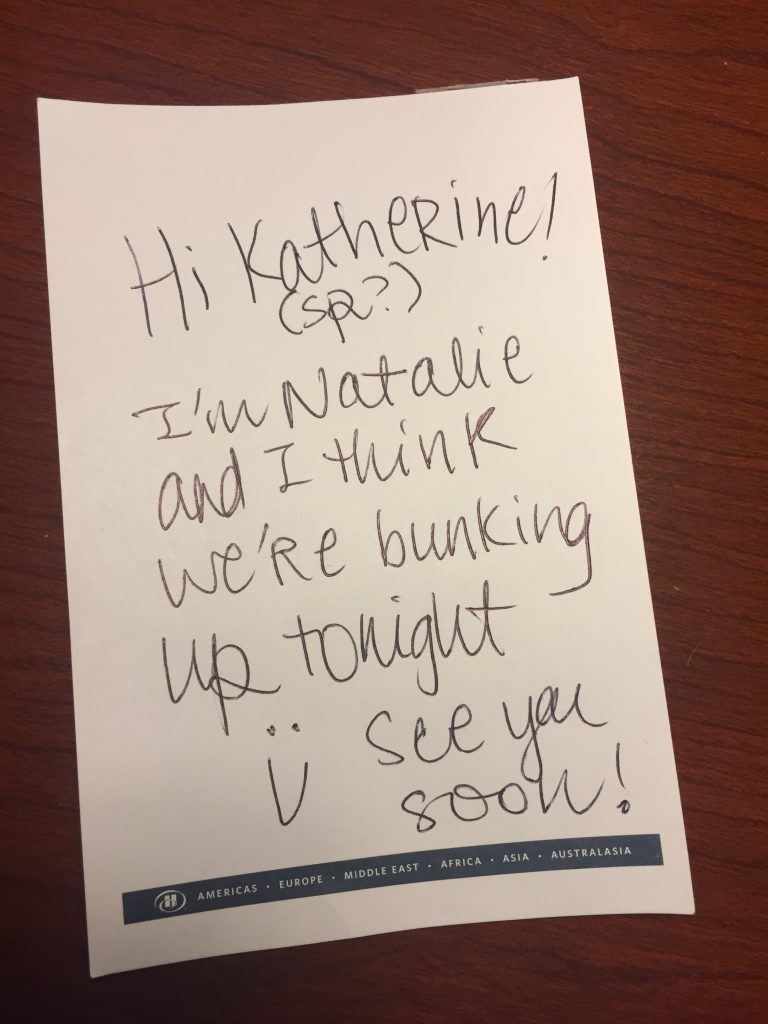 Hi Katherine!
(sp?)
I'm Natalie
and I think
we're bunking
up tonight
:) see you
soon!
H AMERICAS · EUROPE · MIDDLE EAST · AFRICA · ASIA · AUSTRALASIA